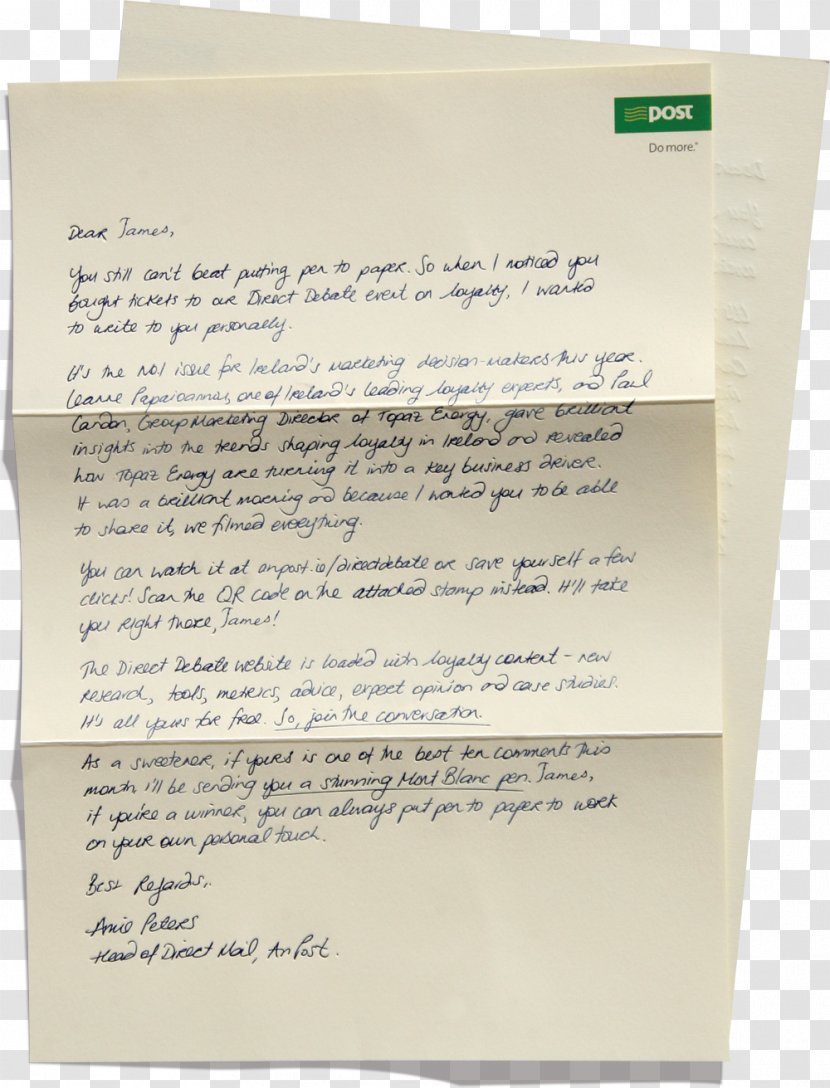 post
Do more.
Dear James,
You still can't beat putting pen to paper. So when I noticed you
bought tickets to our Direct Debate event on loyalty, I wanted
to write to you personally.
It's the No.1 issue for Ireland's marketing decision-makers this year.
Leanne Papaioannou, one of Ireland's leading loyalty experts, and Paul
Candon, Group Marketing Director of Topaz Energy, gave brilliant
insights into the trends shaping loyalty in Ireland and revealed
how Topaz Energy are turning it into a key business driver.
It was a brilliant morning and because I wanted you to be able
to share it, we filmed everything.
You can watch it at anpost.ie/directdebate or save yourself a few
clicks! Scan the QR code on the attached stamp instead. It'll take
you right there, James!
The Direct Debate website is loaded with loyalty content - new
research, tools, metrics, advice, expert opinion and case studies.
It's all yours for free. So, join the conversation.
As a sweetener, if yours is one of the best ten comments this
month i'll be sending you a stunning Mont Blanc pen. James,
if you're a winner, you can always put pen to paper to work
on your own personal touch.
Best Regards,
Peters
Head of Direct Mail, An Post.